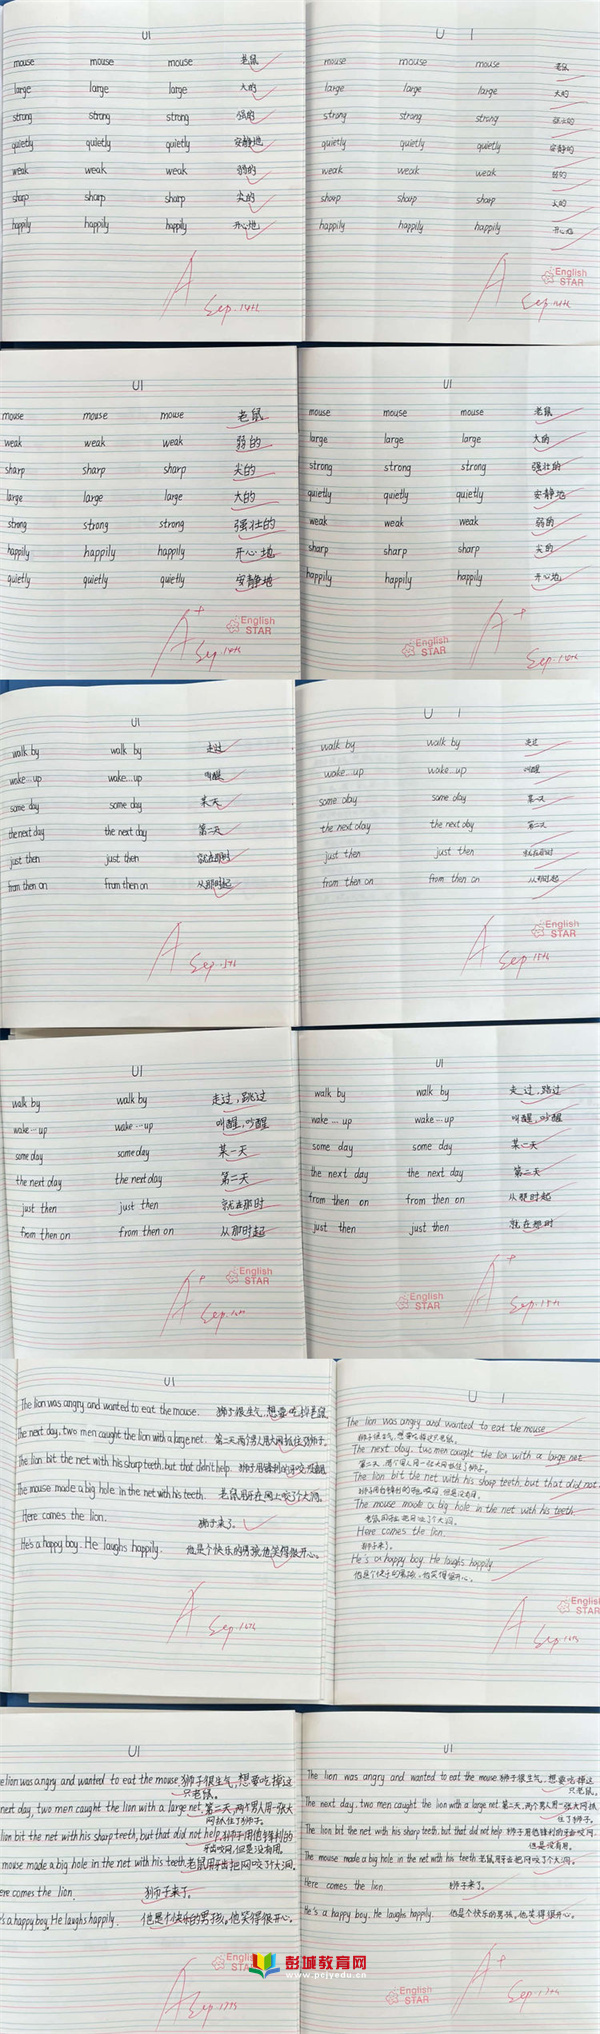 U1
mouse mouse mouse 老鼠
large large large 大的
strong strong strong 强的
quietly quietly quietly 安静地
weak weak weak 弱的
sharp sharp sharp 尖的
happily happily happily 开心地
A
Sep. 14th
U 1
mouse mouse mouse 老鼠
large large large 大的
strong strong strong 强壮的
quietly quietly quietly 安静的
weak weak weak 弱的
sharp sharp sharp
happily happily happily 开心地
A
English
STAR
Sep. 14th
U1
mouse mouse mouse 老鼠
weak weak weak 弱的
sharp sharp sharp 尖的
large large large 大的
strong strong strong 强壮的
happily happily happily 开心地
quietly quietly quietly 安静地
A+
English
STAR
Sep. 14th
U1
mouse mouse mouse 老鼠
large large large 大的
strong strong strong 强壮的
quietly quietly quietly 安静地
weak weak weak 弱的
sharp sharp sharp 尖的
happily happily happily 开心地
A+
English
STAR
Sep. 14th
U1
walk by walk by 走过
wake...up wake...up 叫醒
some day some day 某天
the next day the next day 第二天
just then just then 就在那时
from then on from then on 从那时起
A
Sep. 15th
U 1
walk by walk by 走过
wake...up wake...up 叫醒
some day some day 某一天
the next day the next day 第二天
just then just then 就在那时
from then on from then on 从那时起
A
English
STAR
Sep. 15th
U1
walk by walk by 走过，跳过
wake...up wake...up 叫醒，吵醒
some day some day 某一天
the next day the next day 第二天
just then just then 就在那时
from then on from then on 从那时起
A+
English
STAR
U1
walk by walk by 走过，路过
wake...up wake...up 叫醒，吵醒
some day some day 某一天
the next day the next day 第二天
from then on from then on 从那时起
just then just then 就在那时
A+
English
STAR
Sep. 15th
U1
The lion was angry and wanted to eat the mouse. 狮子很生气，想要吃掉老鼠
The next day, two men caught the lion with a large net. 第二天两个男人用大网抓住了狮子。
The lion bit the net with his sharp teeth, but that didn't help. 狮子用锋利的牙咬
The mouse made a big hole in the net with his teeth. 老鼠用牙在网上咬了个大洞。
Here comes the lion. 狮子来了。
He's a happy boy. He laughs happily. 他是个快乐的男孩，他笑得很开心。
A
Sep. 16th
U 1
The lion was angry and wanted to eat the mouse
狮子很生气，想要吃掉这只老鼠。
The next day, two men caught the lion with a large net
第二天，两个男人用一张大网抓住了狮子。
The lion bit the net with his sharp teeth, but that did not
狮子用锋利的牙咬网，但是没有用。
The mouse made a big hole in the net with his teeth
老鼠用牙把网咬了个大洞。
Here comes the lion.
狮子来了。
He's a happy boy. He laughs happily
他是个快乐的男孩，他笑得很开心。
A
English
STAR
Sep. 16th
U1
e lion was angry and wanted to eat the mouse. 狮子很生气，想要吃掉这
只老鼠。
next day, two men caught the lion with a large net. 第二天，两个男人用一张大
网抓住了狮子。
lion bit the net with his sharp teeth, but that did not help. 狮子用他锋利的
牙齿咬网，但是没有用。
mouse made a big hole in the net with his teeth. 老鼠用牙齿把网咬了个大洞。
ere comes the lion. 狮子来了。
's a happy boy. He laughs happily. 他是个快乐的男孩。他笑得很开心。
English
STAR
A
彭城教育网
www.pcjyedu.cn
U1
The lion was angry and wanted to eat the mouse. 狮子很生气，想要吃掉这
只老鼠。
The next day, two men caught the lion with a large net. 第二天，两个男人用一张大网抓
住了狮子。
The lion bit the net with his sharp teeth, but that did not help 狮子用他锋利的牙齿咬网，
但是没有用。
The mouse made a big hole in the net with his teeth. 老鼠用牙齿把网咬了个大洞。
Here comes the lion. 狮子来了。
He's a happy boy. He laughs happily. 他是个快乐的男孩，他笑得很开心。
A+
English
STAR